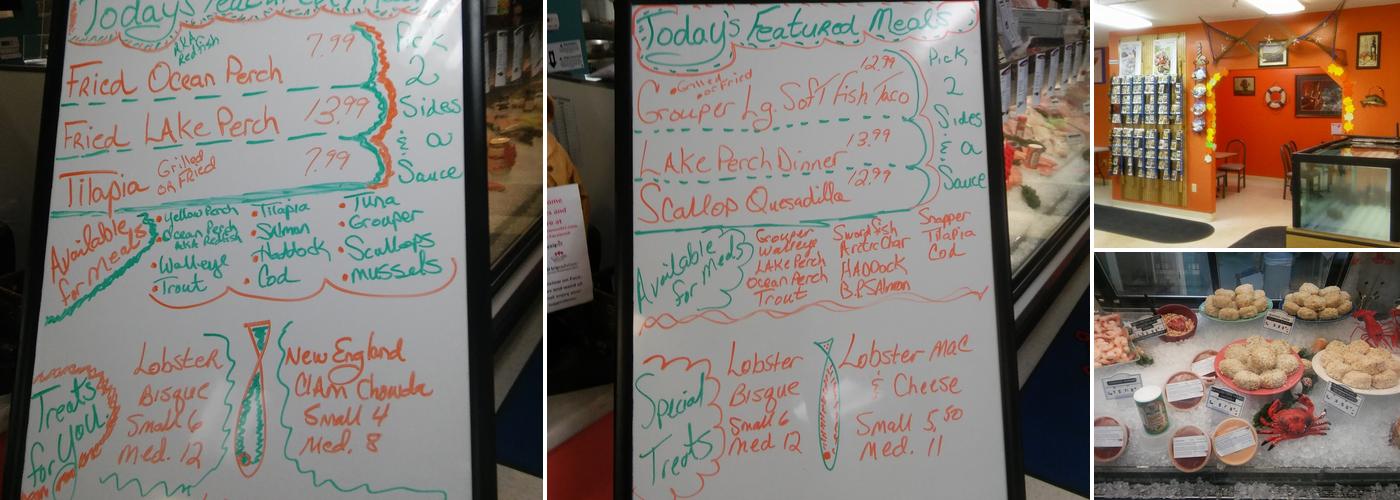 Today's Featured Meals
AKA
Redfish
Fried Ocean Perch 7.99
Fried Lake Perch 13.99
Tilapia Grilled
or Fried 7.99
Pick
2
Sides
& a
Sauce
Available
for meals
• Yellow Perch
• Ocean Perch
AKA Redfish
• Walleye
• Trout
• Tilapia
• Salmon
• Haddock
• Cod
• Tuna
• Grouper
• Scallops
• mussels
Treats
for you.
Lobster
Bisque
Small 6
Med. 12
New England
Clam Chowda
Small 4
Med. 8
Today's Featured Meals
12.99
• Grilled
• or Fried
Grouper Lg. Soft Fish Taco
13.99
Lake Perch Dinner
12.99
Scallop Quesadilla
Pick
2
Sides
& a
Sauce
Available
for meals
Grouper
Walleye
Lake Perch
Ocean Perch
Trout
Swordfish
Arctic Char
Haddock
B.P. Salmon
Snapper
Tilapia
Cod
Special
Treats
Lobster
Bisque
Small 6
Med 12
Lobster Mac
& Cheese
Small 5.50
Med. 11